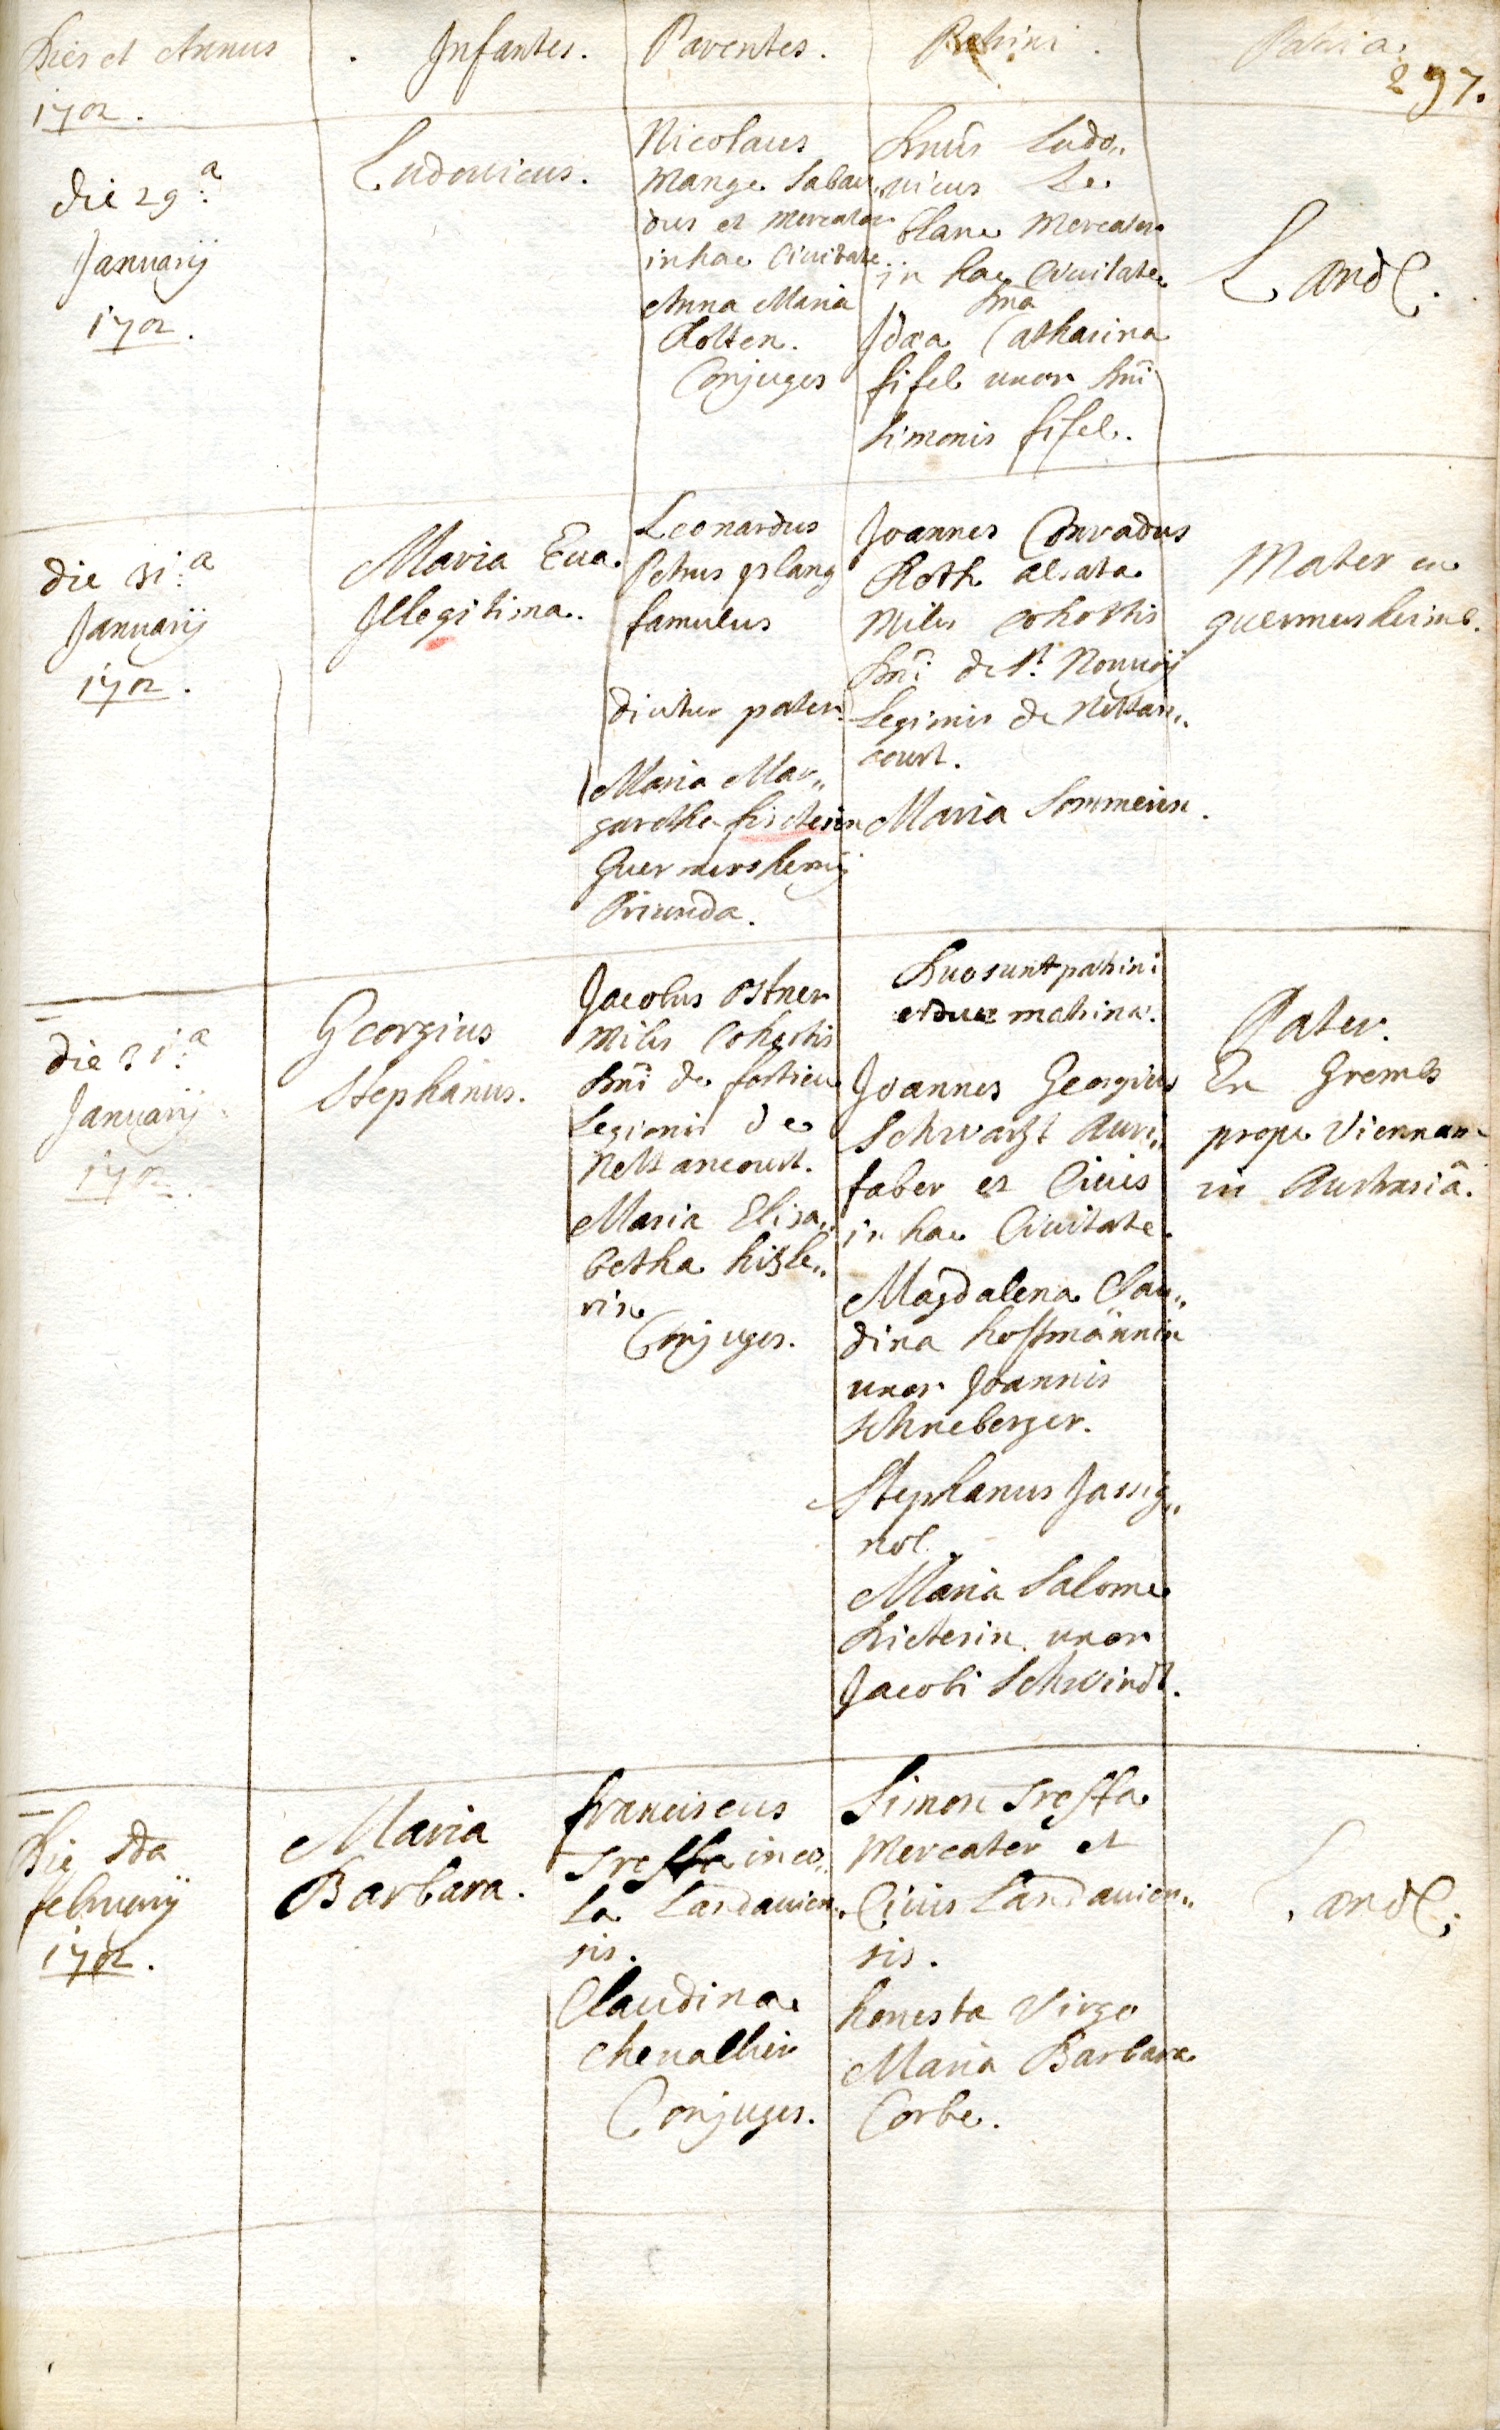 Dies et Annus
1702.
Infantes.
Parentes.
Patrini.
Patria.
297.
die 29.a
Januarij
1702.
Ludouicus.
Nicolaus
Mange Sabau
dus et mercator
in hac Ciuitate
Anna Maria
Rolten.
Conjuges
Dnus Ludo„
uicus Le
blanc Mercator
in hac Ciuitate
Dna
Catharina
fifel uxor Dni
Simonis fifel.
Land.
die 31.a
Januarij
1702.
Maria Eua.
Illegitima.
Leonardus
Petrus
famulus
dicitur pater.
Maria Mar„
garetha
Guermershemij
Oriunda.
Joannes Conradus
Roth alsata
Miles cohortis
Dni de St.
Legionis de Nettan„
court.
Maria Sommerin.
Mater ex
guermersheimb.
die 31.a
Januarij
1702.
Georgius
Stephanus.
Jacobus Ostner
Miles Cohortis
Dni de
Legionis de
Nettancourt.
Maria Elisa„
betha hisle„
rin
Conjuges.
Duo sunt patrini
et duæ matrinæ.
Joannes Georgius
Schwartzt Auri„
faber et Ciuis
in hac Ciuitate.
Magdalena Clau„
dina hoffmännin
uxor Joannis
Schneberger.
Stephanus Jassig„
nol.
Maria Salome
Richterin uxor
Jacobi Schwindt.
Pater.
Ex Grembs
prope Viennam
in Austriâ.
Die 2da
februarij
1702.
Maria
Barbara.
franciscus
Treffa inco„
la Landauien„
sis.
Claudina
Cheuallier
Conjuges.
Simon Treffa
Mercator et
Ciuis Landauien„
sis.
honesta Virgo
Maria Barbara
Corbe.
Land.